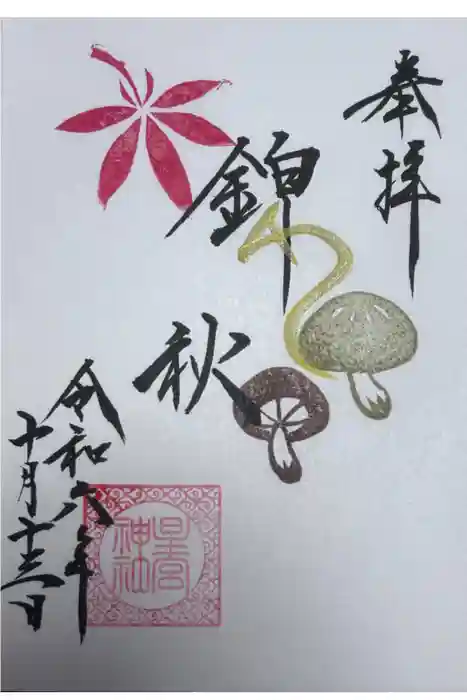 奉拝
錦秋
星宮
神社
令和六年
十月十三日